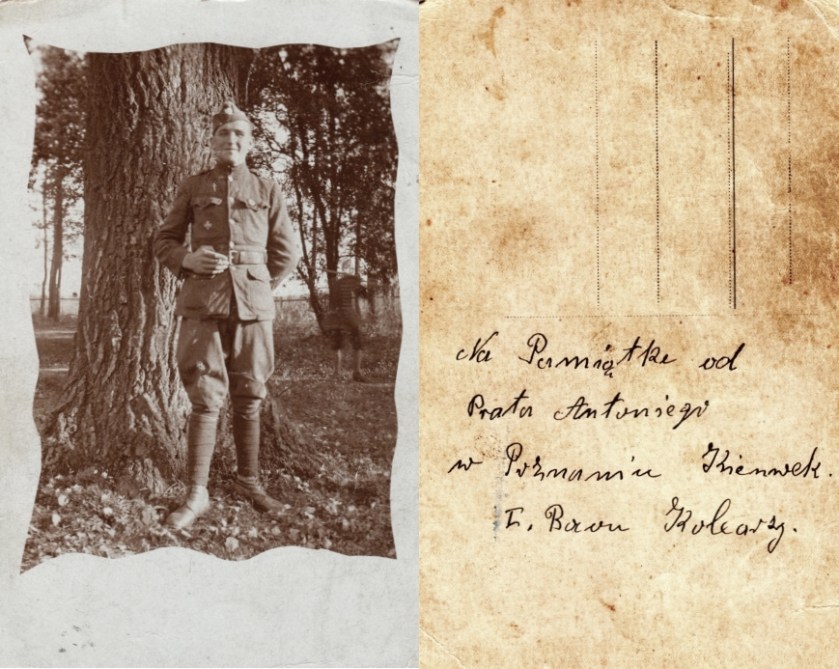 Na Pamiątke od
Brata Antoniego
w Poznaniu
I. Baon Kolearzy.